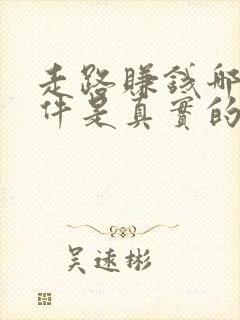 走路賺錢哪
件是真實的
吴遠彬